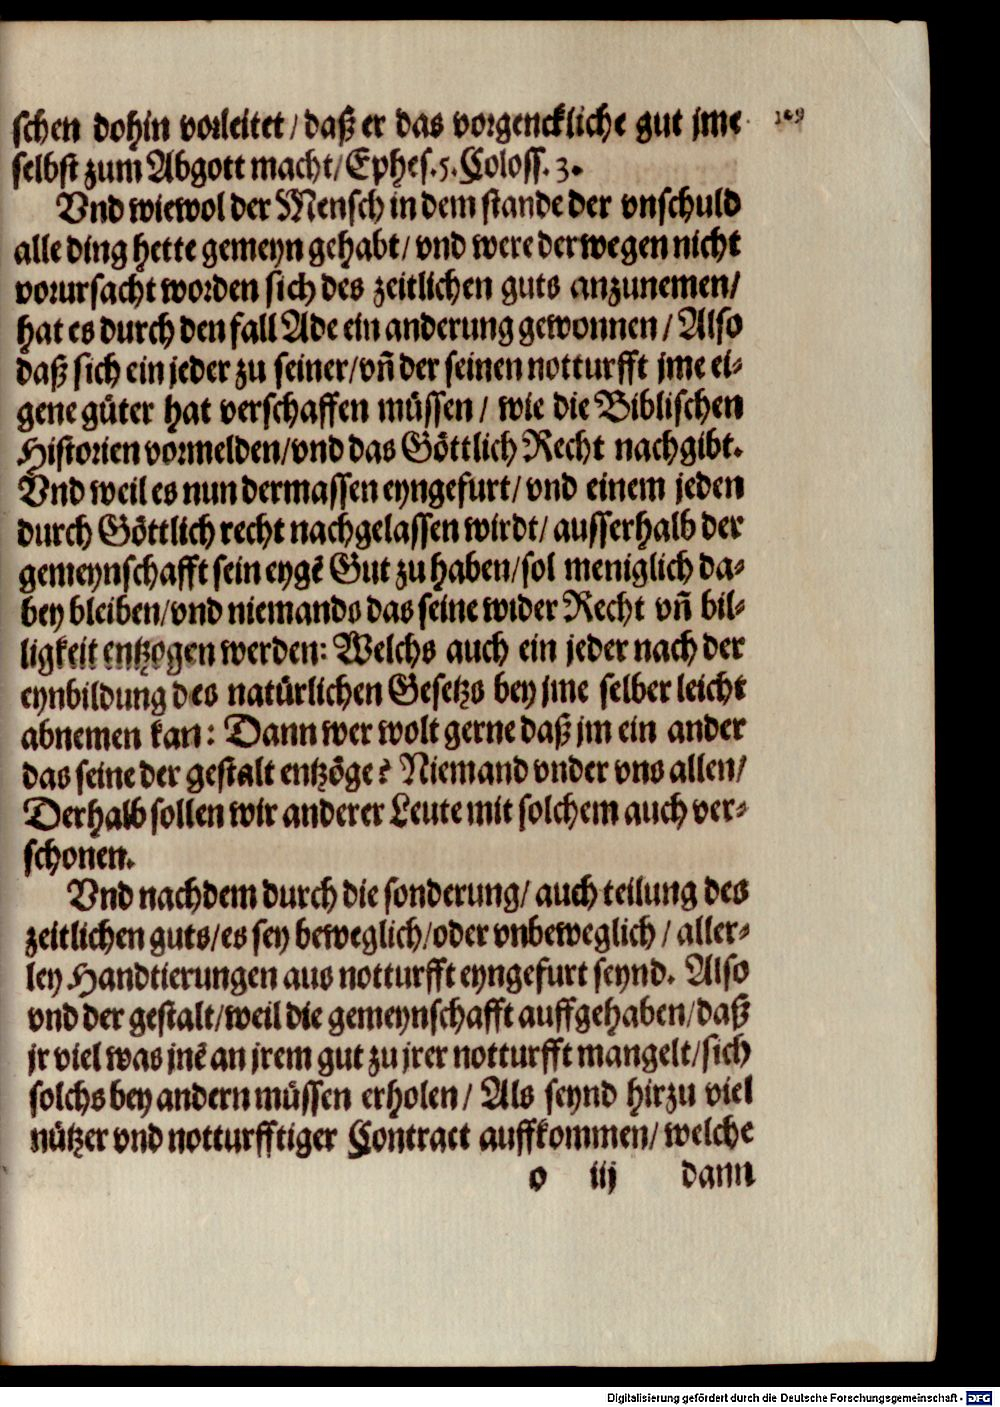 schen dohin vorleitet / daß er das vorgenckliche gut jme
selbst zum Abgott macht / Ephes. 5. Coloss. 3.
Vnd wiewol der Mensch in dem stande der vnschuld
alle ding hette gemeyn gehabt / vnd were derwegen nicht
vorursacht worden sich des zeitlichen guts anzunemen /
hat es durch den fall Ade ein anderung gewonnen / Also
daß sich ein jeder zu seiner / vñ der seinen notturfft jme ei-
gene güter hat verschaffen müssen / wie die Biblischen
Historien vormelden / vnd das Göttlich Recht nachgibt.
Vnd weil es nun dermassen eyngefurt / vnd einem jeden
durch Göttlich recht nachgelassen wirdt / ausserhalb der
gemeynschafft sein eygē Gut zu haben / sol meniglich da-
bey bleiben / vnd niemands das seine wider Recht vñ bil-
ligkeit entzogen werden: Welchs auch ein jeder nach der
eynbildung des natürlichen Gesetzs bey jme selber leicht
abnemen kan: Dann wer wolt gerne daß jm ein ander
das seine der gestalt entzöge? Niemand vnder vns allen /
Derhalb sollen wir anderer Leute mit solchem auch ver-
schonen.
Vnd nachdem durch die sonderung / auch teilung des
zeitlichen guts / es sey beweglich / oder vnbeweglich / aller-
ley Handtierungen aus notturfft eyngefurt seynd. Also
vnd der gestalt / weil die gemeynschafft auffgehaben / daß
jr viel was jnē an jrem gut zu jrer notturfft mangelt / sich
solchs bey andern müssen erholen / Als seynd hirzu viel
nützer vnd notturfftiger Contract auffkommen / welche
o iij dann
Digitalisierung gefördert durch die Deutsche Forschungsgemeinschaft - DFG